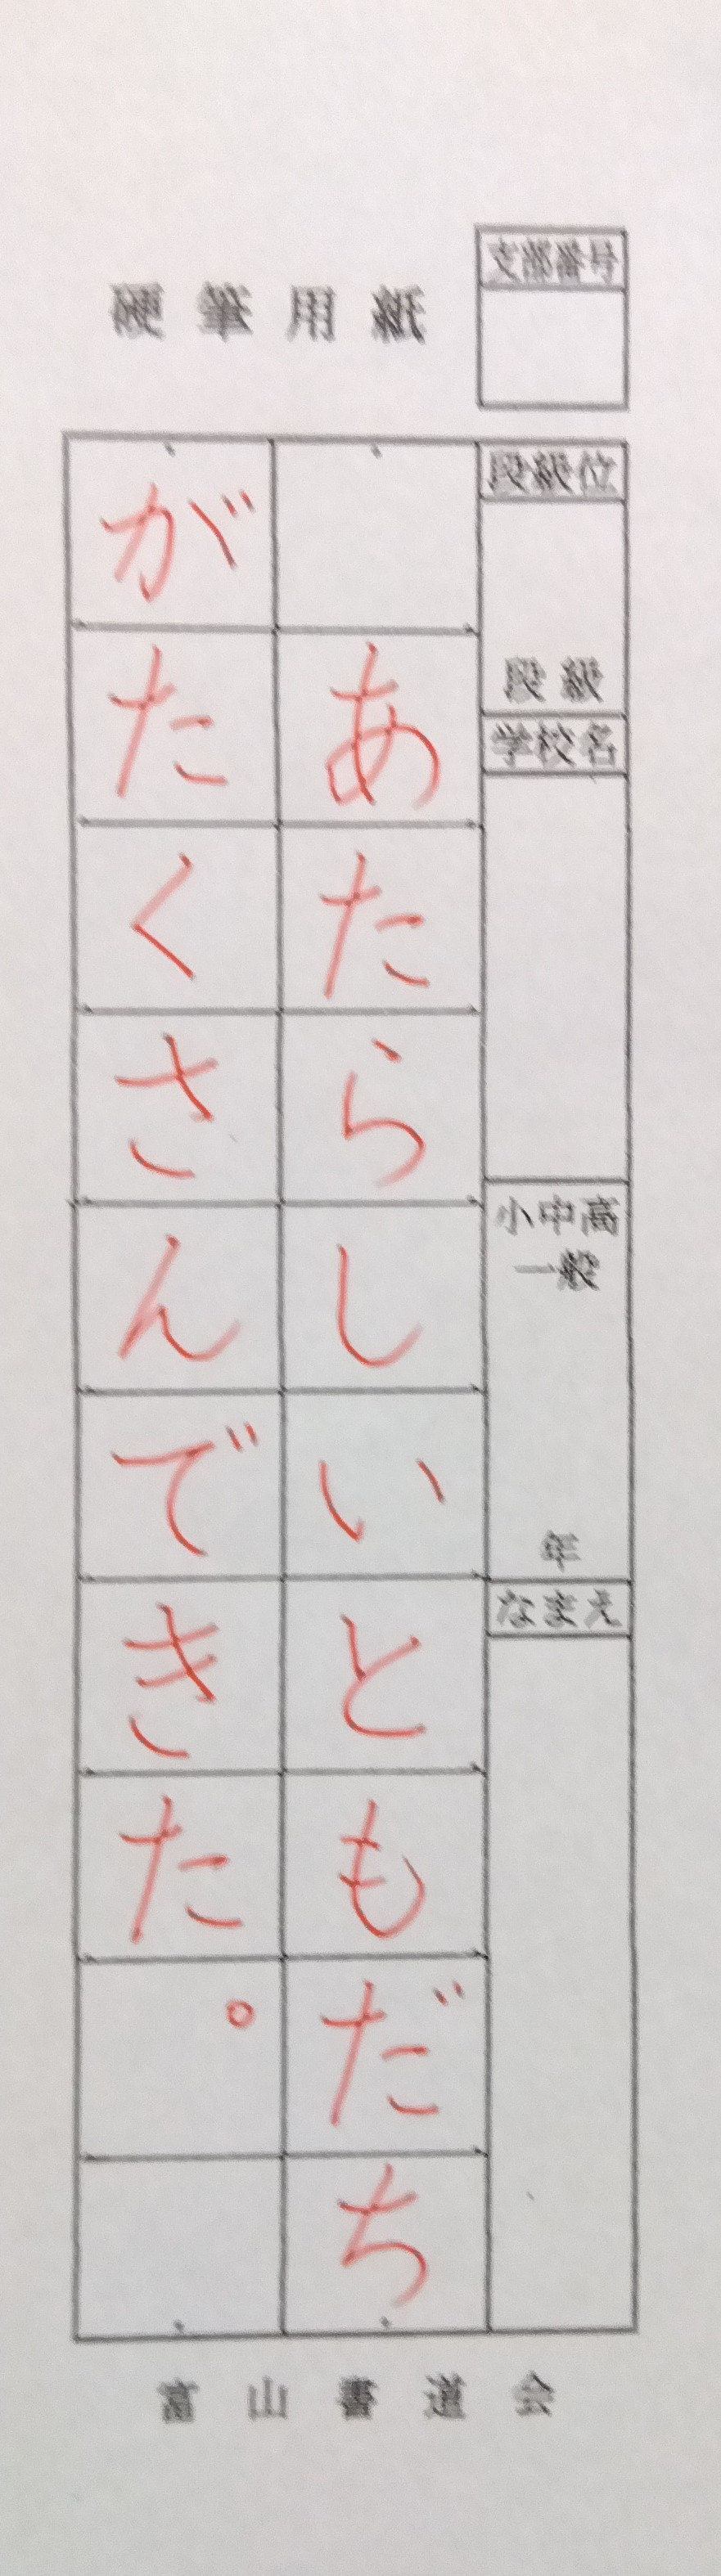 硬筆用紙
支部番号
段級位
段級
学校名
小中高
一般
年
なまえ
あたらしいともだち
がたくさんできた。
富山書道会